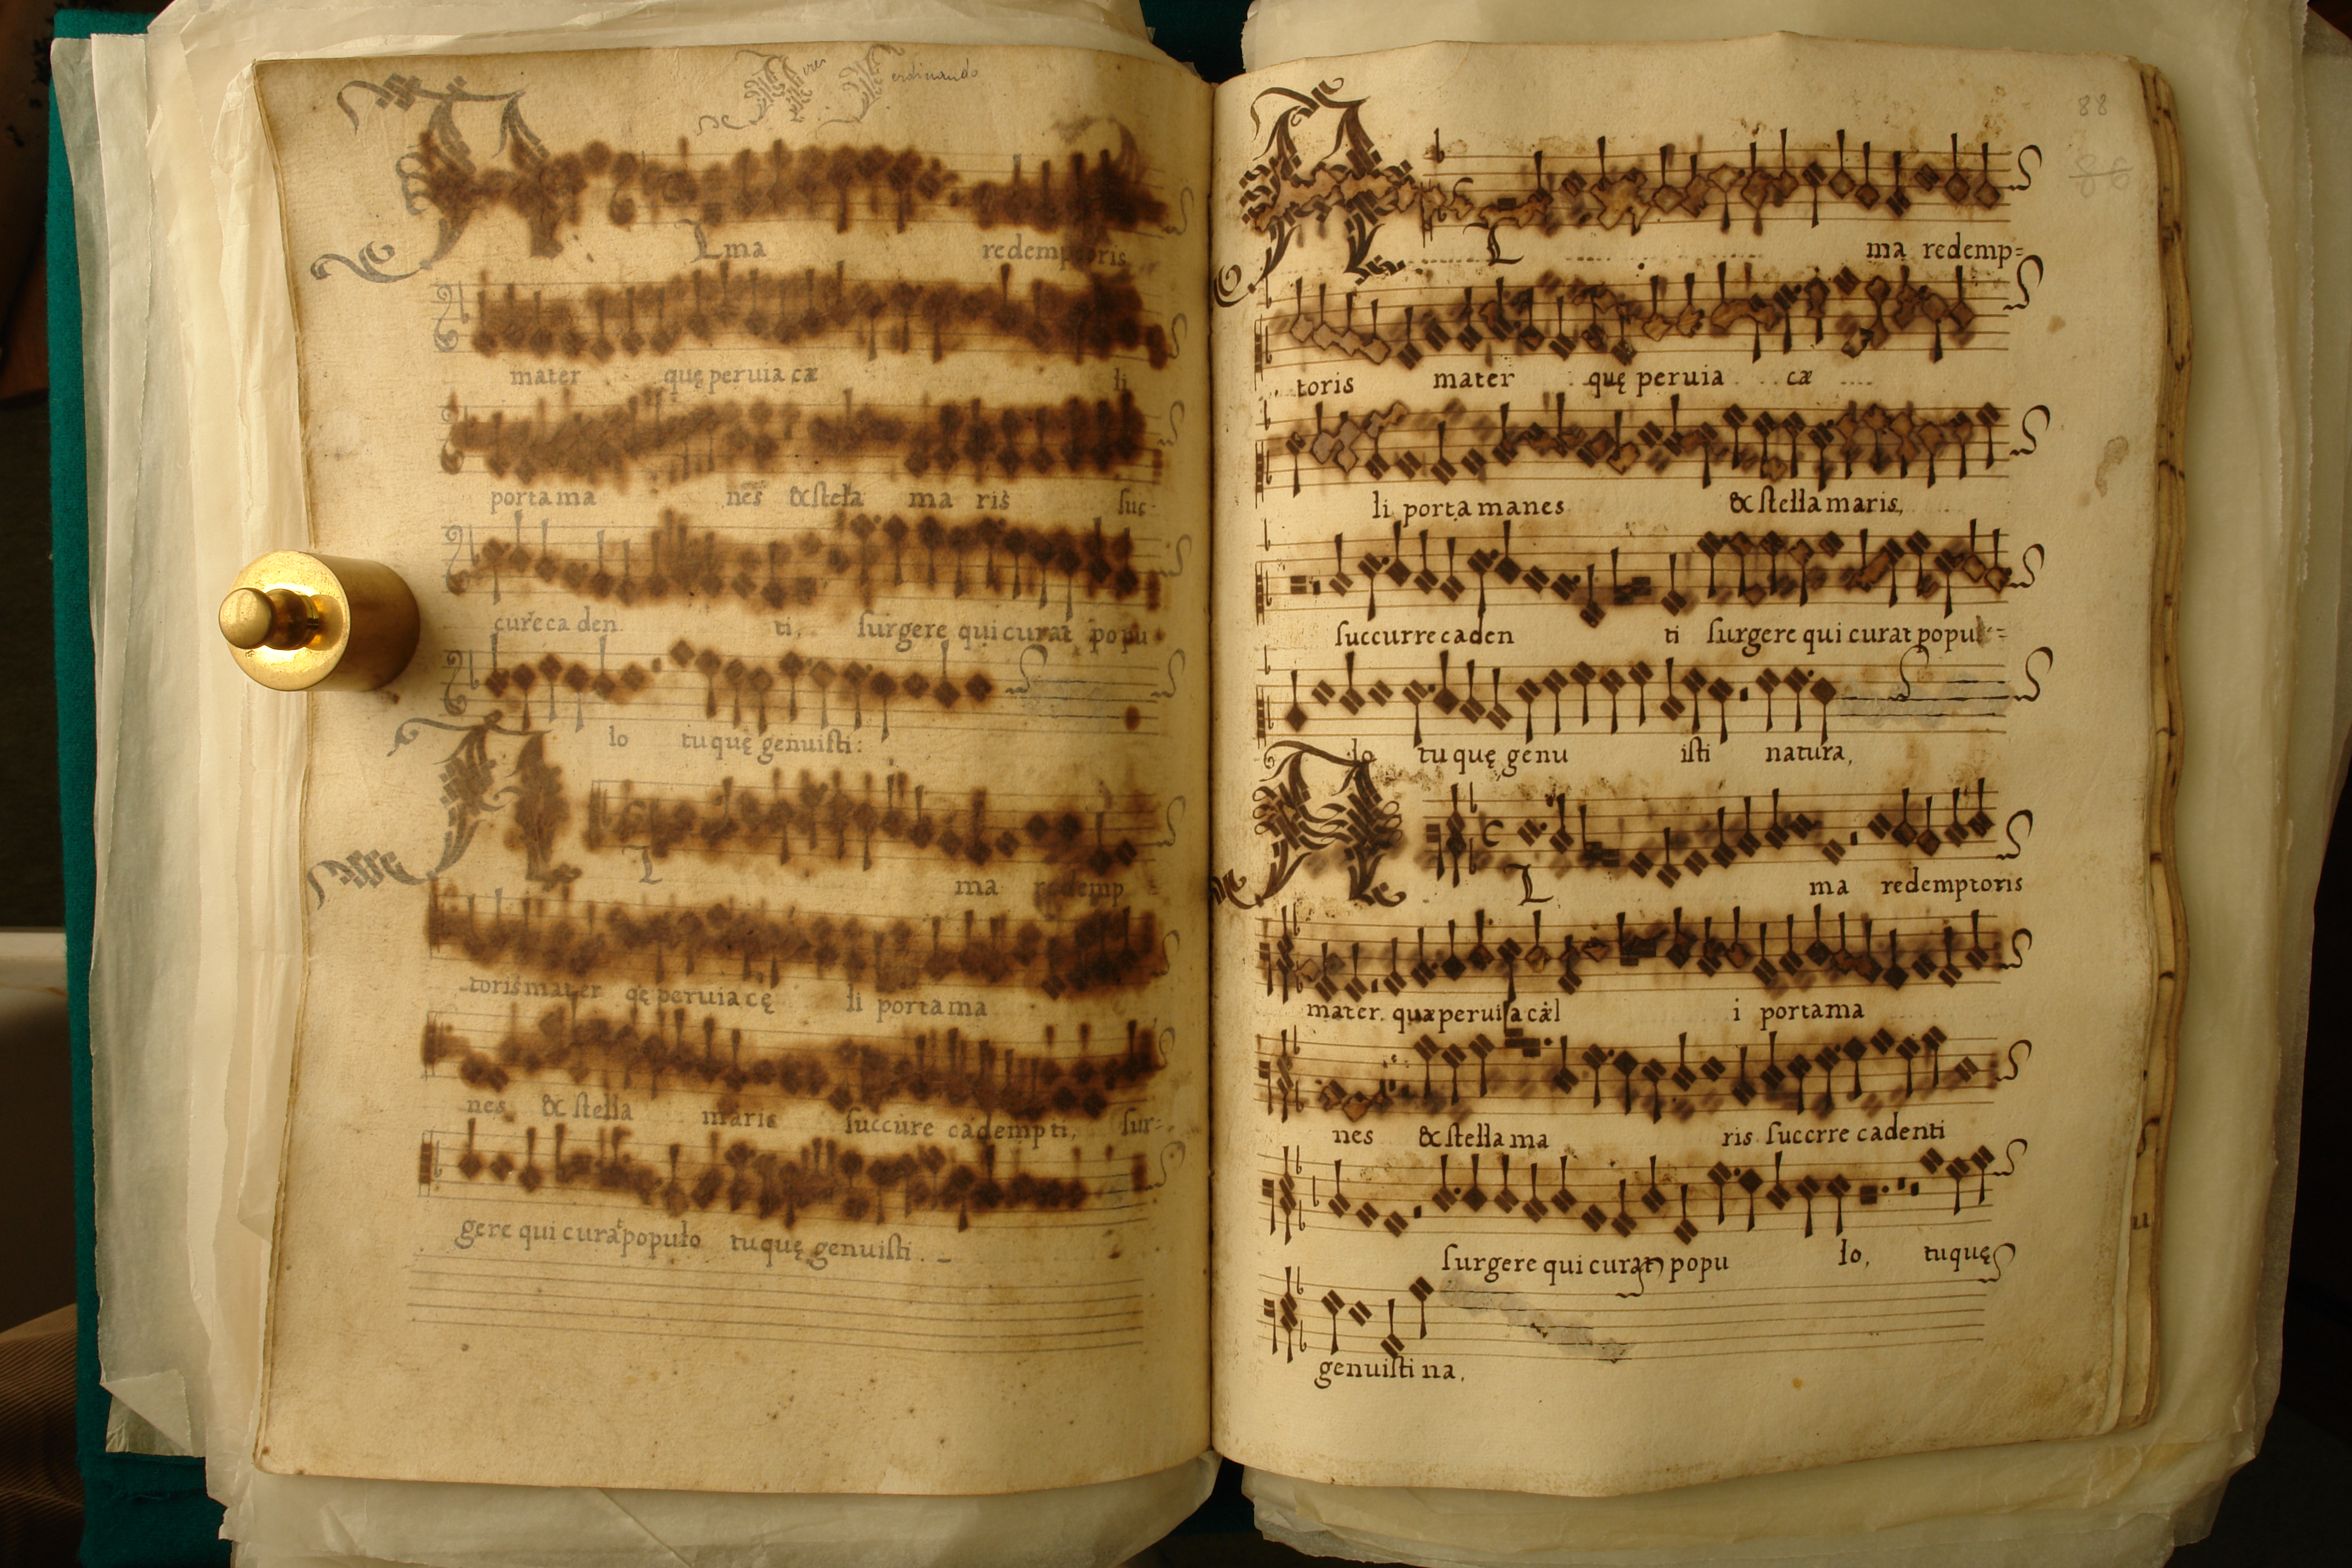 Ferdinando
Alma redemptoris
mater quę peruia cæ li
porta ma nes & stella ma ris suc-
cure ca den ti, surgere qui curat popu
lo tu quę genuisti:
AL ma redemp
toris mater qę peruia cę li porta ma
nes & stella maris succure cadempti, sur-
gere qui curat populo tu quę genuisti.
88
86
AL ma redemp=
toris mater quę peruia cæ
li porta manes & stella maris,
succurre caden ti surgere qui curat popu=
lo tu quę genu isti natura,
AL ma redemptoris
mater quæ peruia cæl i porta ma
nes & stella ma ris succrre cadenti
surgere qui curat popu lo, tu quę
genuisti na,